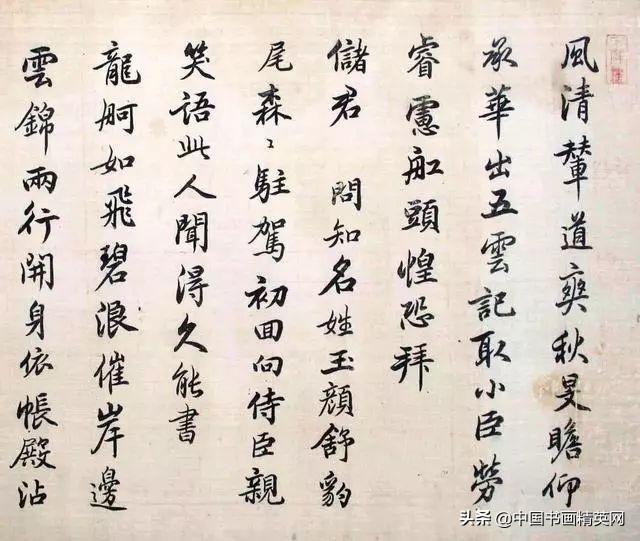 風清輦道爽秋旻瞻仰
承華出五雲記取小臣勞
睿慮舡頭惶恐拜
儲君 問知名姓玉顏舒豹
尾森〻駐駕初回向侍臣親
笑語此人聞得久能書
龍舸如飛碧浪催岸邊
雲錦兩行開身依帳殿沾
头条 @中国书画精英网